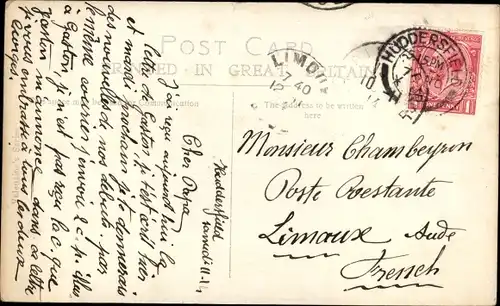 POST CARD
PRINTED IN GREAT BRITAIN
The Address to be written
here
HUDDERSFIELD
LIMOUX
Huddersfield
samedi
Cher Papa
j'ai reçu aujourd'hui la
lettre de Gaston je t'écrirai
et mardi prochain je te donnerai
des nouvelles de nos débuts par
le même courrier j'envoie 2 c. p. illus
à Gaston, je n'ai pas reçu la c. que
Gaston m'annonce dans sa lettre
je vous embrasse tous
Georges
Monsieur Chambeyron
Poste Restante
Limoux Aude
French